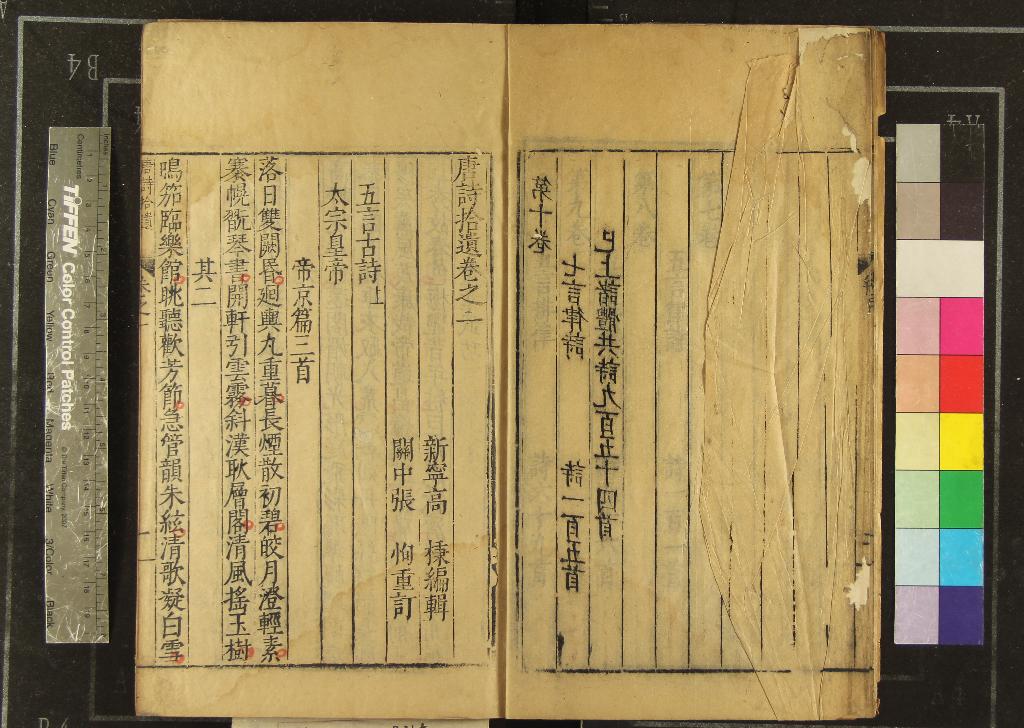 第十卷
七言律詩 詩一百五首
已上諸體共詩九百五十四首
唐詩拾遺卷之一
新寧高 棅編輯
關中張 恂重訂
五言古詩上
太宗皇帝
帝京篇三首
落日雙闕昏廻輿九重暮長煙散初碧皎月澄輕素
搴幌翫琴書開軒引雲霧斜漢耿層閣清風搖玉樹
其二
鳴笳臨樂館眺聽歡芳節急管韻朱絃清歌凝白雪
唐詩拾遺
B4
TIFFEN Color Control Patches
Centimetres
Inches
Blue
Cyan
Green
Yellow
Red
Magenta
White
3/Color
Black
A4